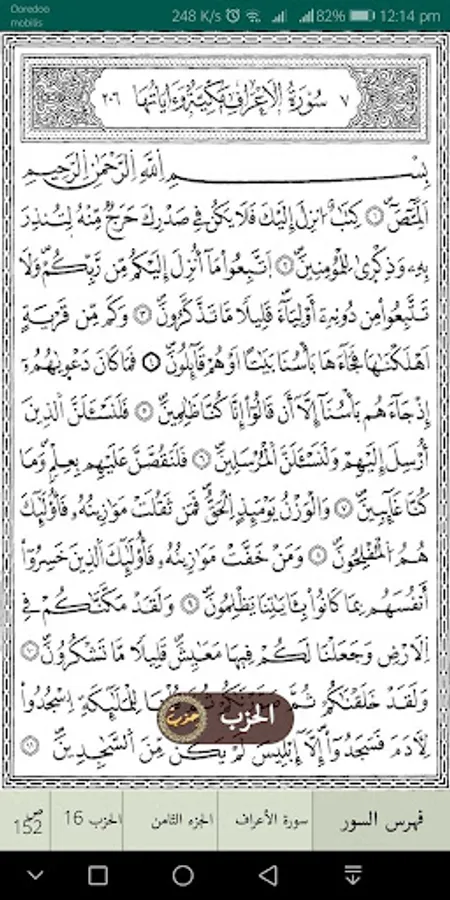 Ooredoo
mobilis
248 K/s 82% 12:14 pm
٧ سُورَةُ الْأَعْرَافِ مَكِّيَّةٌ وَءَايَاتُهَا ٢٠٦
بِسْمِ اِللَّهِ اِلرَّحْمَٰنِ اِلرَّحِيمِ
أَلَٓمِّٓصَٓۖ ١ كِتَٰبٌ اُنزِلَ إِلَيْكَ فَلَا يَكُن فِي صَدْرِكَ حَرَجٌ مِّنْهُ لِتُنذِرَ
بِهِۦ وَذِكْر۪ىٰ لِلْمُؤْمِنِينَۖ ٢ اَ۪تَّبِعُواْ مَآ أُنزِلَ إِلَيْكُم مِّن رَّبِّكُمْ وَلَا
تَتَّبِعُواْ مِن دُونِهِۦٓ أَوْلِيَآءَۖ قَلِيلًا مَّا تَذَّكَّرُونَۖ ٣ وَكَم مِّن قَرْيَةٍ
اَهْلَكْنَٰهَا فَجَآءَهَا بَأْسُنَا بَيَٰتًا اَوْ هُمْ قَآئِلُونَۖ ٤ فَمَا كَانَ دَعْوٜيٰهُمُۥٓ
إِذْ جَآءَهُم بَأْسُنَآ إِلَّآ أَن قَالُوٓاْ إِنَّا كُنَّا ظَٰلِمِينَۖ ٥ فَلَنَسْـَٔلَنَّ اَلذِينَ
أُرْسِلَ إِلَيْهِمْ وَلَنَسْـَٔلَنَّ اَلْمُرْسَلِينَۖ ٦ فَلَنَقُصَّنَّ عَلَيْهِم بِعِلْمٍ وَمَا
كُنَّا غَآئِبِينَۖ ٧ وَالْوَزْنُ يَوْمَئِذٍ اِلْحَقُّ فَمَن ثَقُلَتْ مَوَٰزِينُهُۥ فَأُوْلَٰٓئِكَ
هُمُ اُلْمُفْلِحُونَۖ ٨ وَمَنْ خَفَّتْ مَوَٰزِينُهُۥ فَأُوْلَٰٓئِكَ اَلذِينَ خَسِرُوٓاْ
أَنفُسَهُم بِمَا كَانُواْ بِـَٔايَٰتِنَا يَظْلِمُونَۖ ٩ وَلَقَدْ مَكَّنَّٰكُمْ فِي
اِلَارْضِ وَجَعَلْنَا لَكُمْ فِيهَا مَعَٰيِشَۖ قَلِيلًا مَّا تَشْكُرُونَۖ ١٠
وَلَقَدْ خَلَقْنَٰكُمْ ثُمَّ لِلْمَلَٰٓئِكَةِ اِ۟سْجُدُواْ
لِأٓدَمَ فَسَجَدُوٓاْ إِلَّآ إِبْلِيسَ لَمْ يَكُن مِّنَ اَلسَّٰجِدِينَۖ ١١
الحزب حزب
فهرس السور سورة الأعراف الجزء الثامن الحزب 16 صـ 152